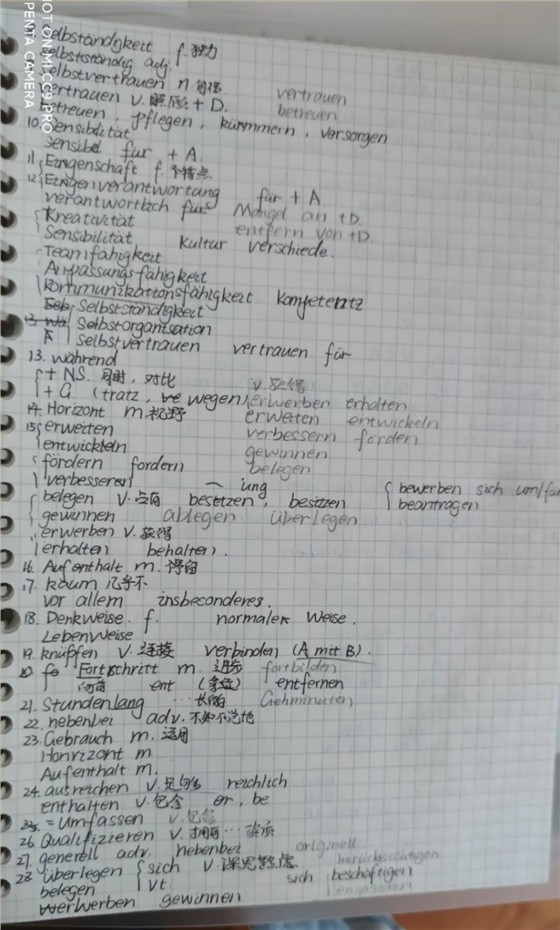 Selbständgkeit f. 独力
selbstständig adj.
selbstvertrauen n. 自信 vertrauen
vertrauen v. 照顾 + D. betreuen
betreuen, pflegen, kümmern, versorgen
10. Sensibilität
sensibel für + A.
11. Eingenschaft f. 个特点
12. Eigenverantwortung für + A
verantwortlich für Mangel an + D.
Kreativität entfern von + D
Sensibilität Kultur verschiede.
Teamfähigkeit
Anpassungsfähigkeit
Kommunikationsfähigkeit Kompetentz
Selbstständigkeit
Selbstorganisation
selbstvertrauen vertrauen für
13. während
+ NS. 同时, 对比 v. 获得
+ G (tratz, wegen) erwerben erhalten
14. Horizont m. 视野 erweiten entwickeln
15. erweiten verbessern förden
entwickeln gewinnen
fördern fordern belegen
verbesseren ung bewerben sich um/für
belegen v. 占有 besetzen, besitzen beantragen
gewinnen ablegen überlegen
erwerben v. 获得
erhalten behalten.
16. Aufenthalt m. 停留
17. kaum 几乎不
vor allem insbesonderes.
18. Denkweise f. normaler Weise.
LebenWeise
19. knüpfen v. 连接 verbinden (A mit B).
20 Fortschritt m. 进步 fortbilden
向前 ent entfernen
21. Stundenlang ... 长的 Gehminuten
22. nebenbei adv. 不知不觉地
23. Gebrauch m. 运用
Honrizont m
Aufenthalt m.
24. ausreichen v. 足够 reichlich
enthalten v. 包含 er, be
25. = Umfassen v. 包含
26. Qualifizieren v. 拥有 ... 资质
27. generell adv. nebenbei originell
28 überlegen sich v. 深思熟虑 berücksichtigen
belegen vt. sich beschäftigen
erwerben gewinnen
SHOT ON MI CC9 PRO
PENTA CAMERA